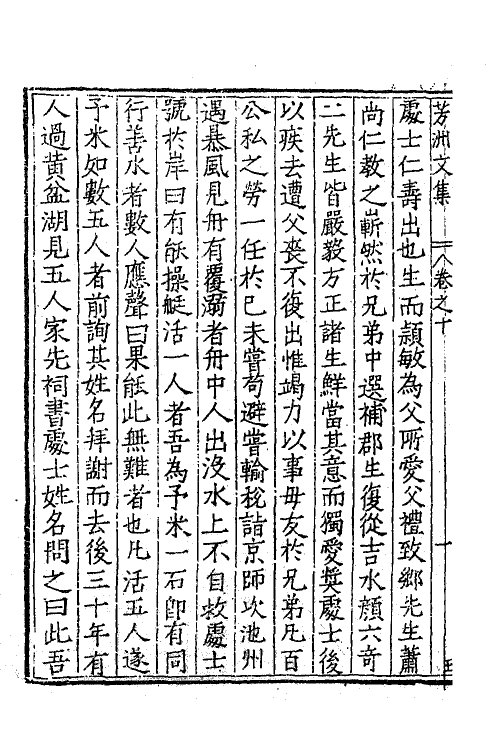 芳洲文集 卷之十
處士仁壽出也生而頴敏為父所愛父禮致鄉先生蕭
尚仁教之嶄然於兄弟中選補郡生復從吉水顏六竒
二先生皆嚴毅方正諸生鮮當其意而獨愛奬處士後
以疾去遭父喪不復出惟竭力以事母友於兄弟凡百
公私之勞一任於已未嘗苟避嘗輸稅詣京師坎池州
遇暴風見舟有覆溺者舟中人出沒水上不自救處士
號於岸曰有能操艇活一人者吾為予米一石即有同
行善水者數人應聲曰果能此無難者也凡活五人遂
予米如數五人者前詢其姓名拜謝而去後三十年有
人過黄盆湖見五人家先祠書處士姓名問之曰此吾